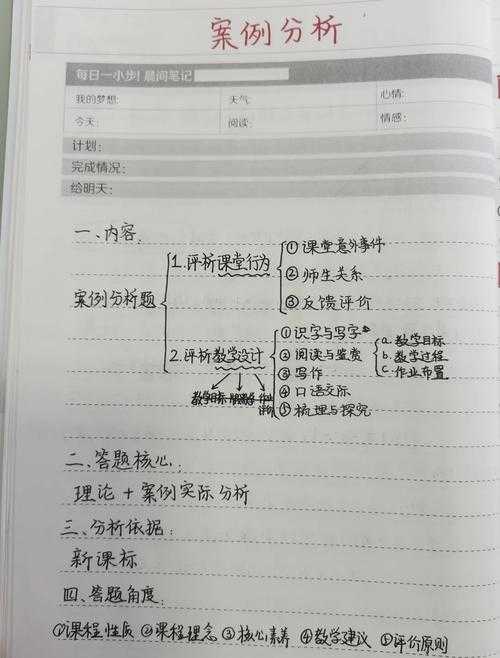 案例分析
每日一小步! 晨间笔记
我的梦想: 天气: 心情:
今天: 阅读: 情感:
计划:
完成情况:
给明天:
一、内容.
案例分析题
1.评析课堂行为
①课堂意外事件
②师生关系
③反馈评价
2.评析教学设计
教学目标
①识字与写字
②阅读与鉴赏
③写作
④口语交际
⑤梳理与探究
a.教学目标
b.教学过程
c.作业布置
二、答题核心:
理论+案例实际分析
三、分析依据:
新课标
四、答题角度:
①课程性质 ②课程理念 ③核心素养 ④教学建议 ⑤评价原则